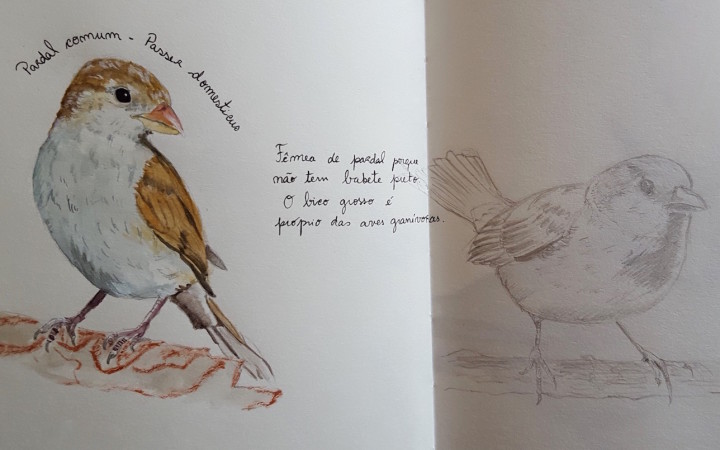 Pardal comum - Passer domesticus
Fêmea de pardal porque
não tem babete preto
O bico grosso é
próprio das aves granívoras.